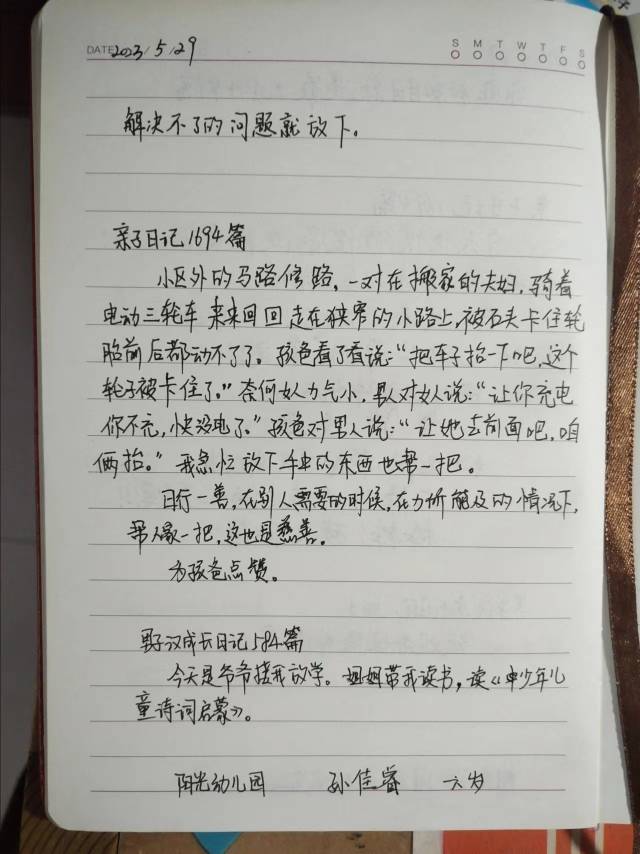 DATE 2023/5/29
S M T W T F S
解决不了的问题就放下。
亲子日记1694篇
小区外的马路修路，一对在搬家的夫妇，骑着
电动三轮车来来回回走在狭窄的小路上，被石头卡住轮
胎前后都动不了了。孩爸看了看说：“把车子抬一下吧，这个
轮子被卡住了。”奈何女人力气小，男人对女人说：“让你充电
你不充，快没电了。”孩爸对男人说：“让她去前面吧，咱
俩抬。”我急忙放下手中的东西也帮一把。
日行一善，在别人需要的时候，在力所能及的情况下，
帮人家一把，这也是慈善。
为孩爸点赞。
男子汉成长日记584篇
今天是爷爷接我放学。姐姐带我读书，读《中少年儿
童诗词启蒙》。
阳光幼儿园 孙佳睿 六岁